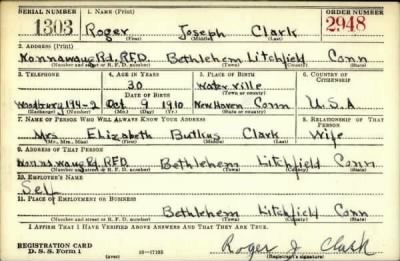 SERIAL NUMBER 1. NAME (Print) ORDER NUMBER
1303 Roger Joseph Clark 2948
(First) (Middle) (Last)
2. ADDRESS (Print)
Nonnawaug Rd. RFD. Bethlehem Litchfield Conn
(Number and street or R. F. D. number) (Town) (County) (State)
3. TELEPHONE 4. AGE IN YEARS 5. PLACE OF BIRTH 6. COUNTRY OF CITIZENSHIP
30 Waterville
DATE OF BIRTH (Town or county)
Woodbury 194-2 Oct 9 1910 New Haven Conn U.S.A
(Exchange) (Number) (Mo.) (Day) (Yr.) (State or country)
7. NAME OF PERSON WHO WILL ALWAYS KNOW YOUR ADDRESS 8. RELATIONSHIP OF THAT PERSON
Mrs Elizabeth Butkus Clark Wife
(Mr., Mrs., Miss) (First) (Middle) (Last)
9. ADDRESS OF THAT PERSON
Nonnawaug Rd. RFD. Bethlehem Litchfield Conn
(Number and street or R. F. D. number) (Town) (County) (State)
10. EMPLOYER'S NAME
Self
11. PLACE OF EMPLOYMENT OR BUSINESS
Bethlehem Litchfield Conn
(Number and street or R. F. D. number) (Town) (County) (State)
I AFFIRM THAT I HAVE VERIFIED ABOVE ANSWERS AND THAT THEY ARE TRUE.
REGISTRATION CARD
D. S. S. Form 1 (over) 16—17105 Roger J Clark
(Registrant's signature)